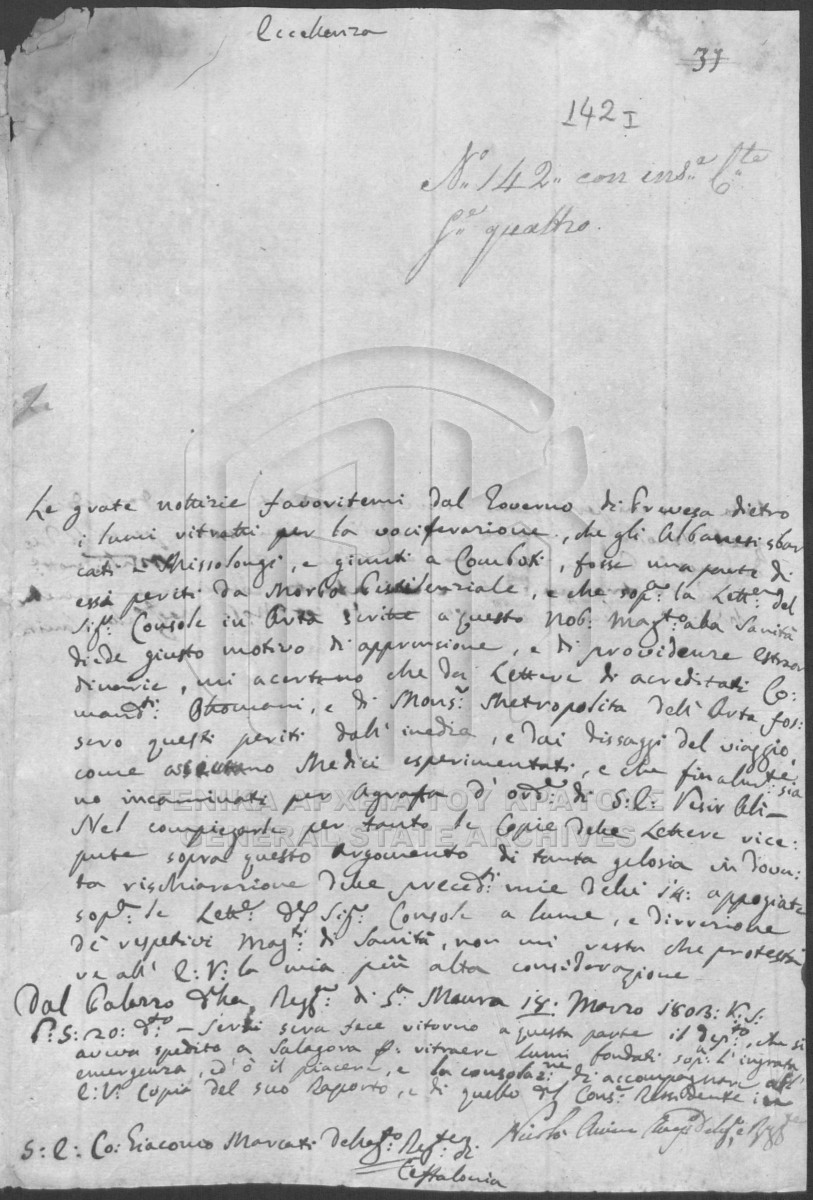 Eccellenza
37
142 I
N.º 142.. con ins.e C.te
S.e quattro.
Le grate nottizie favoritemi dal Governo di Prevesa dietro
i lumi ritratti per la vociferazione, che gli Albanesi sbar
cati a Missolongi, e giunti a Comboti, fosse una parte di
essi periti da Morbo Pestilenziale, e che sop.a la Lett.a del
Sig.r Console in Arta scritta a questo Nob. Mag.to alla Sanità
diede giusto motivo di apprensione, e di providenze estraor
dinarie, mi acertano che da Lettere di acreditati Co:
mand.ti Ottomani, e di Mons.r Metropolita dell' Arta fos:
sero questi periti dall' inedia, e dai dissaggi del viaggio,
come Medici esperimentati, e che finalm.te sia
no incaminati per Agrafa d' ord.e di S: E: Vesir Alì –
Nel compiegarle per tanto le Copie delle Lettere rice:
pute sopra questo argomento di tanta gelosia in dovu:
ta rischiarazione delle preced.ti mie delli 14: appogiate
sop.a le Lett.e del Sig.r Console a lume, e direzione
de' respetivi Mag.ti di Sanità, non mi resta che protesta
re all' E: V: la mia più alta considerazione
Dal Palazzo della Regg.a di S.a Maura 18: Marzo 1803: V. S:
P: S: 20: d.to – sera fece ritorno a questa parte il dep.to, che si
aveva spedito a Salagora p: ritraere lumi fondati sop.a l'ingrata
emergenza, ed ò il piacere, e la consolaz.ne di accompagnare all'
E: V: Copia del suo Raporto, e di quello del Cons.r Ressidente in
Nicolò
S: E: Co: Giacomo Marcati Deleg.to Regg.te di
Ceffalonia
ΓΕΝΙΚΑ ΑΡΧΕΙΑ ΤΟΥ ΚΡΑΤΟΥΣ
GENERAL STATE ARCHIVES